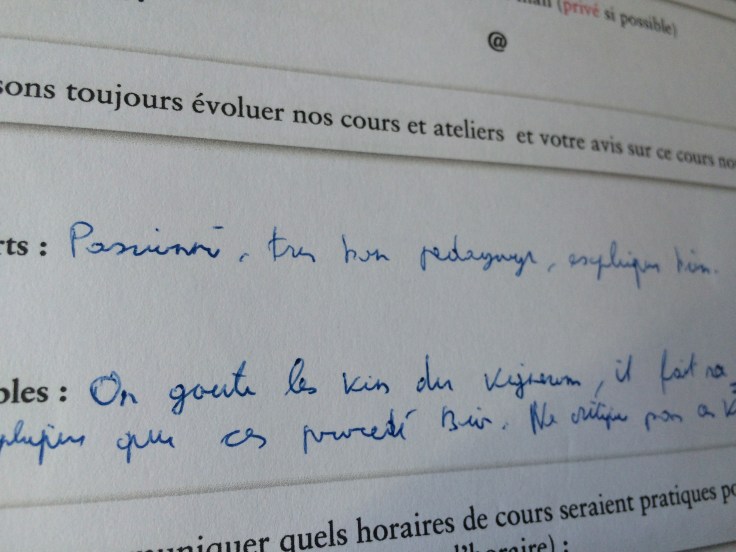 (privé si possible)
@
sons toujours évoluer nos cours et ateliers et votre avis sur ce cours no
rts : Passionné, très bon pedagogue, explique bien.
bles : On goute les vins du vigneron, il fait
que ces procedé Bio. Ne critique pas
muniquer quels horaires de cours seraient pratiques po
l'horaire) :